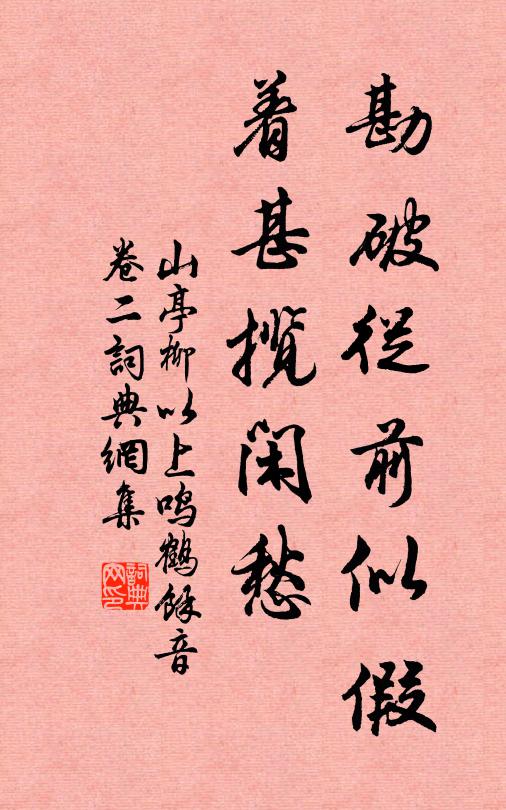 勘破從前似假
着甚攬閑愁
山亭柳以上鳴鶴餘音
卷二詞典網集
詞典
网印